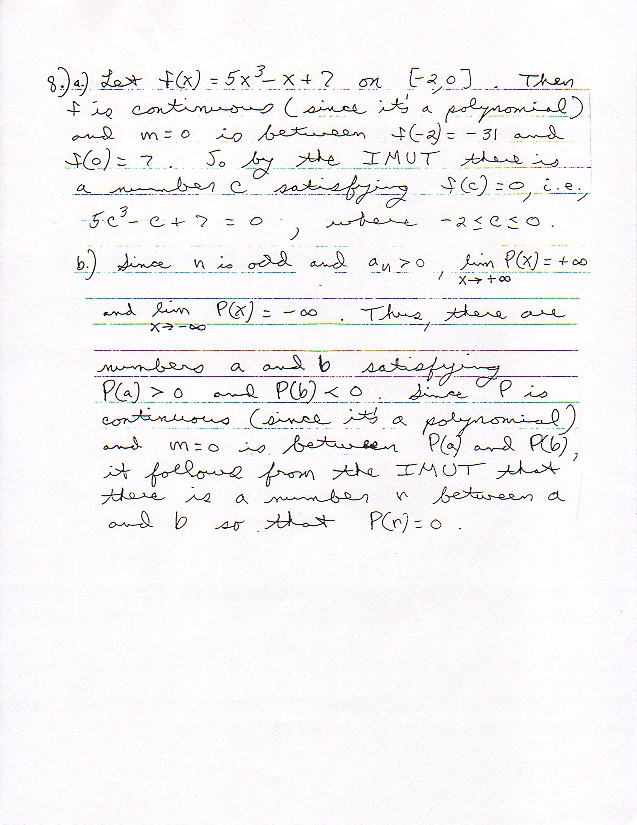 8.) a.) Let f(x) = 5x³ - x + 7 on [-2,0]. Then
f is continuous (since it's a polynomial)
and m = 0 is between f(-2) = -31 and
f(0) = 7. So by the IMVT there is
a number c satisfying f(c) = 0, i.e.,
5c³ - c + 7 = 0, where -2 ≤ c ≤ 0.
b.) Since n is odd and aₙ > 0, lim P(x) = +∞
x→+∞
and lim P(x) = -∞. Thus, there are
x→-∞
numbers a and b satisfying
P(a) > 0 and P(b) < 0. Since P is
continuous (since it's a polynomial)
and m = 0 is between P(a) and P(b),
it follows from the IMVT that
there is a number r between a
and b so that P(r) = 0.